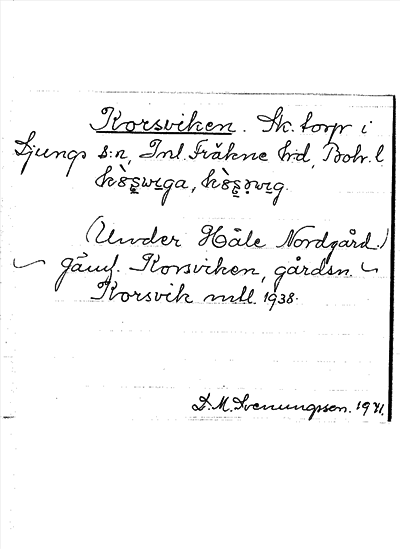 Korsviken. Sk. torp i
Ljungs s:n, Inl. Fräkne hd, Boh. l.
(Under Häle Nordgård.)
Jämf. Korsviken, gårdsn.
Korsvik mtl. 1938.
S. M. Svenungsson. 1971.